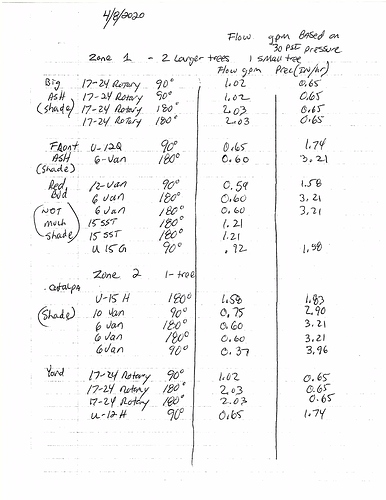 4/8/2020
Flow gpm Based on
30 PSI pressure
Zone 1 - 2 Larger trees 1 small tree
Flow gpm Prec (IN/hr)
Big 17-24 Rotary 90° 1.02 0.65
ASH 17-24 Rotary 90° 1.02 0.65
(shade) 17-24 Rotary 180° 2.03 0.65
17-24 Rotary 180° 2.03 0.65
Front U-12Q 90° 0.65 1.74
ASH 6-Van 180° 0.60 3.21
(shade)
Red 12 Van 90° 0.59 1.58
Bud 6 Van 180° 0.60 3.21
(NOT 6 Van 180° 0.60 3.21
much 15 SST 180° 1.21
shade) 15 SST 180° 1.21
U 15 G 90° .92 1.58
Zone 2 1-tree
Catalpa
U-15 H 180° 1.58 1.83
(Shade) 10 Van 90° 0.75 2.90
6 Van 180° 0.60 3.21
6 Van 180° 0.60 3.21
6 Van 90° 0.37 3.96
Yard 17-24 Rotary 90° 1.02 0.65
17-24 Rotary 180° 2.03 0.65
17-24 Rotary 180° 2.03 0.65
U-12H 90° 0.65 1.74